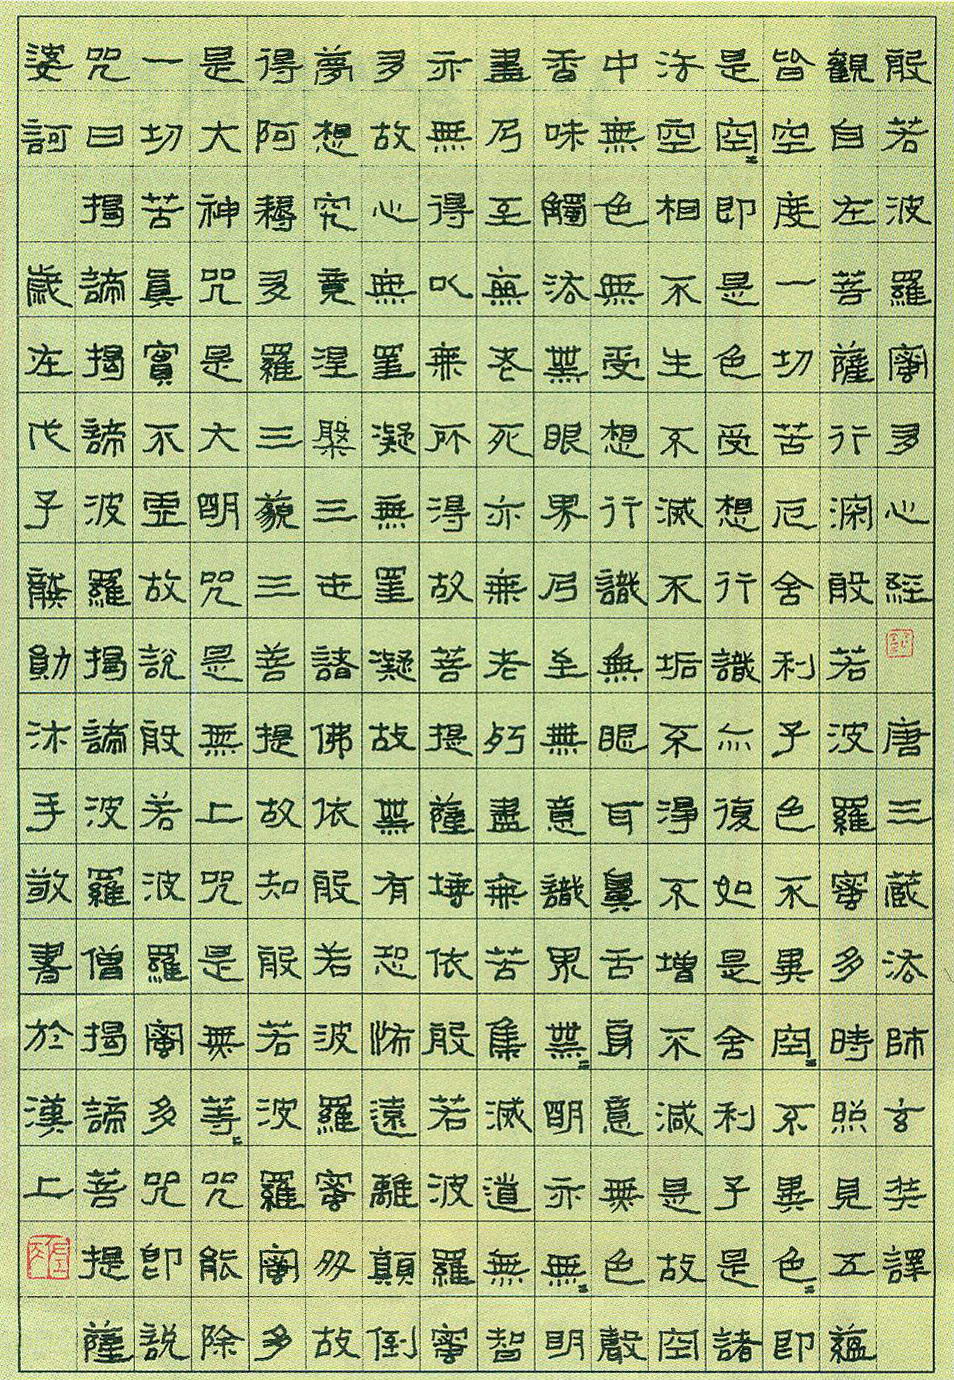 般若波羅蜜多心經 唐三藏法師玄奘譯
觀自在菩薩行深般若波羅蜜多時照見五蘊
皆空度一切苦厄舍利子色不異空〻不異色〻即
是空〻即是色受想行識亦復如是舍利子是諸
法空相不生不滅不垢不淨不增不減是故空
中無色無受想行識無眼耳鼻舌身意無色聲
香味觸法無眼界乃至無意識界無〻明亦無〻明
盡乃至無老死亦無老死盡無苦集滅道無智
亦無得以無所得故菩提薩埵依般若波羅蜜
多故心無罣凝無罣凝故無有恐怖遠離顛倒
夢想究竟涅槃三世諸佛依般若波羅蜜多故
得阿耨多羅三藐三菩提故知般若波羅蜜多
是大神咒是大明咒是無上咒是無等〻咒能除
一切苦真實不虛故說般若波羅蜜多咒即說
咒曰揭諦揭諦波羅揭諦波羅僧揭諦菩提薩
婆訶 歲在戊子龔勛沐手敬書於漢上